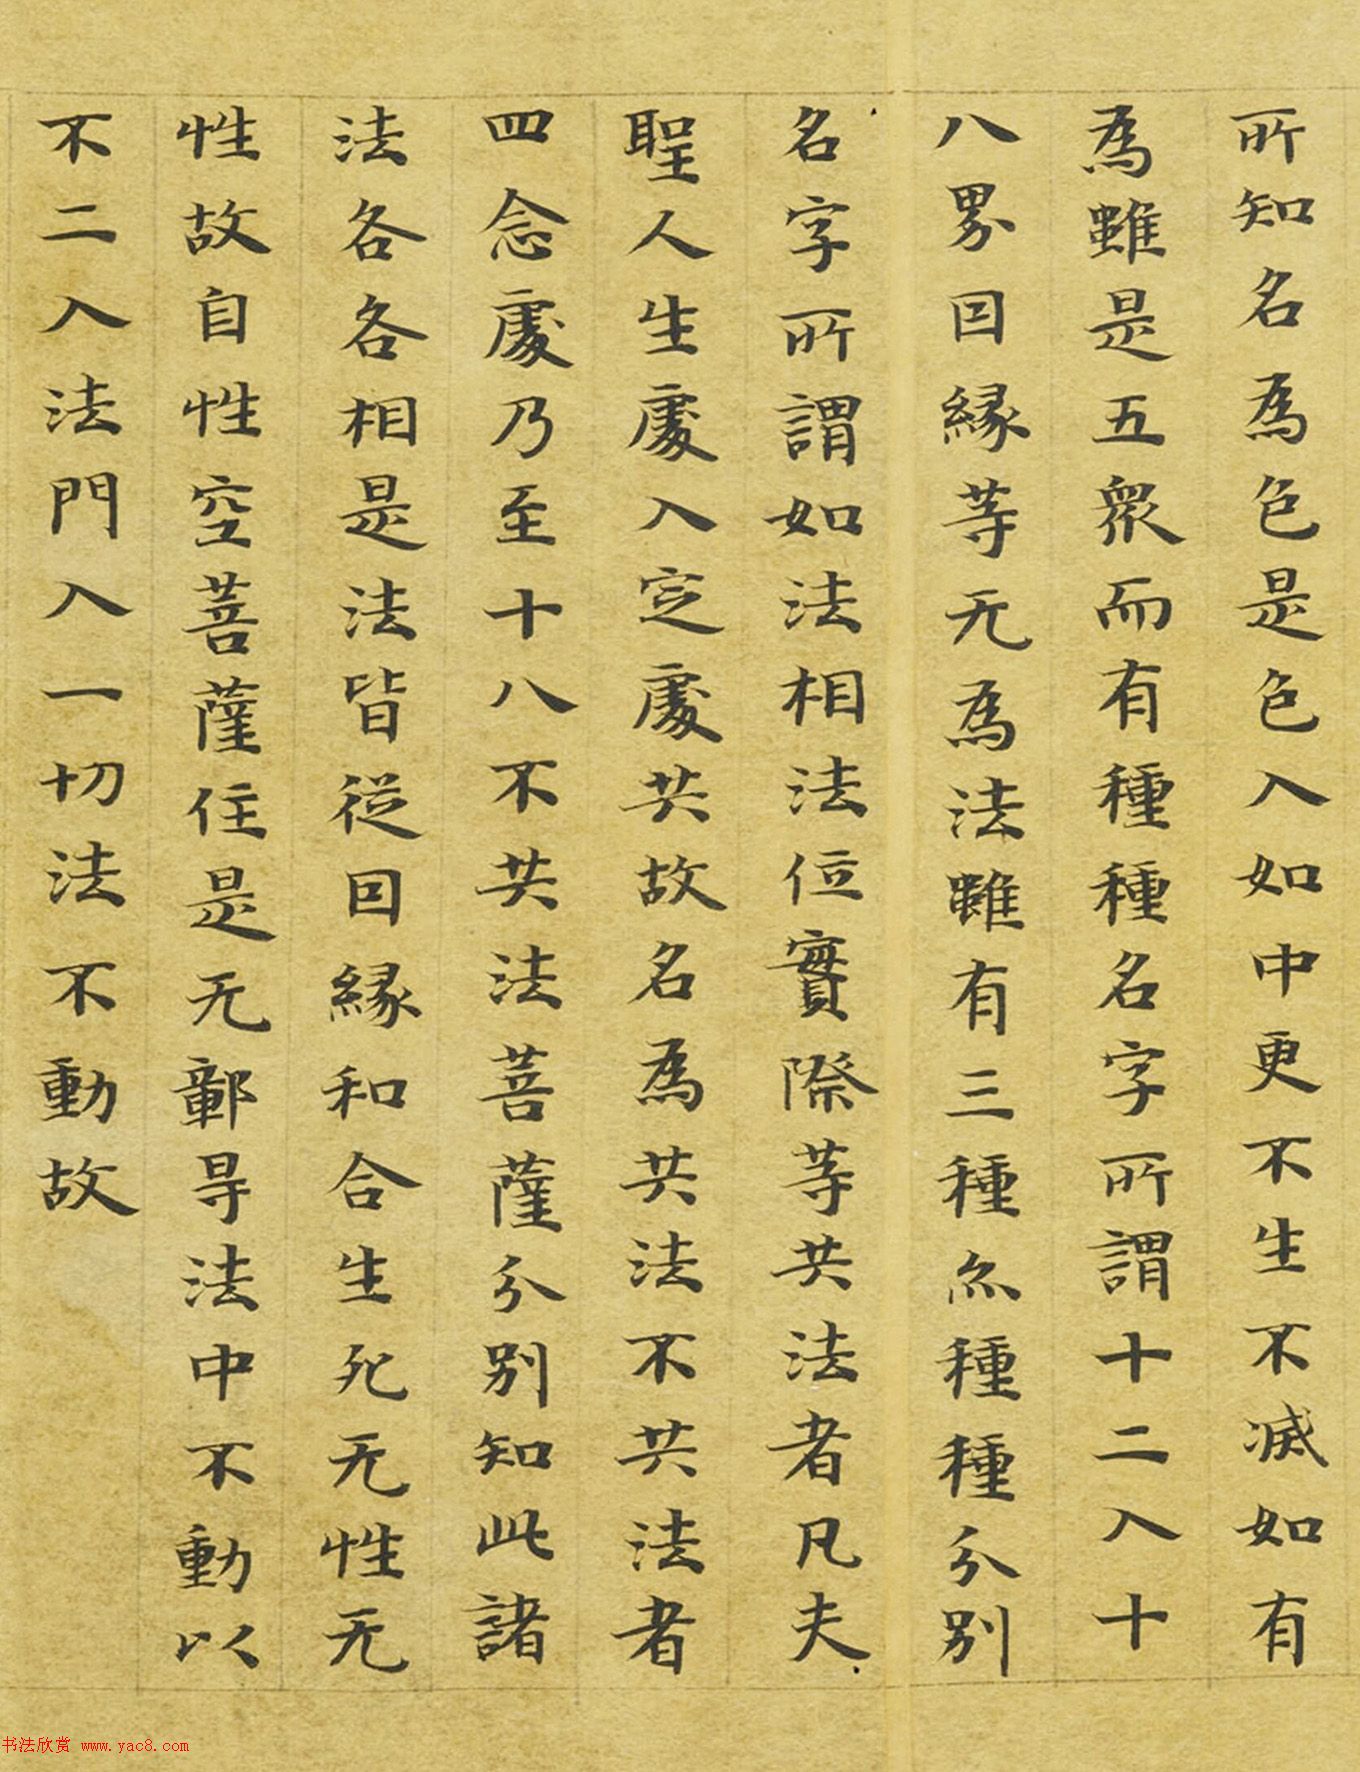 所知名為色是色入如中更不生不滅如有
為雖是五眾而有種種名字所謂十二入十
八界因緣等无為法雖有三種亦種種分別
名字所謂如法相法位實際等共法者凡夫
聖人生處入定處共故名為共法不共法者
四念處乃至十八不共法菩薩分別知此諸
法各各相是法皆從因緣和合生死无性无
性故自性空菩薩住是无鄣㝵法中不動以
不二入法門入一切法不動故
书法欣赏 www.yac8.com